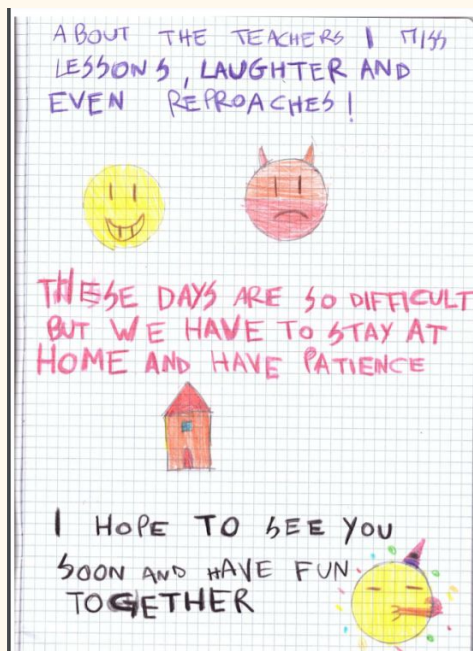 ABOUT THE TEACHERS I MISS
LESSONS, LAUGHTER AND
EVEN REPROACHES!
THESE DAYS ARE SO DIFFICULT
BUT WE HAVE TO STAY AT
HOME AND HAVE PATIENCE
I HOPE TO SEE YOU
SOON AND HAVE FUN
TOGETHER